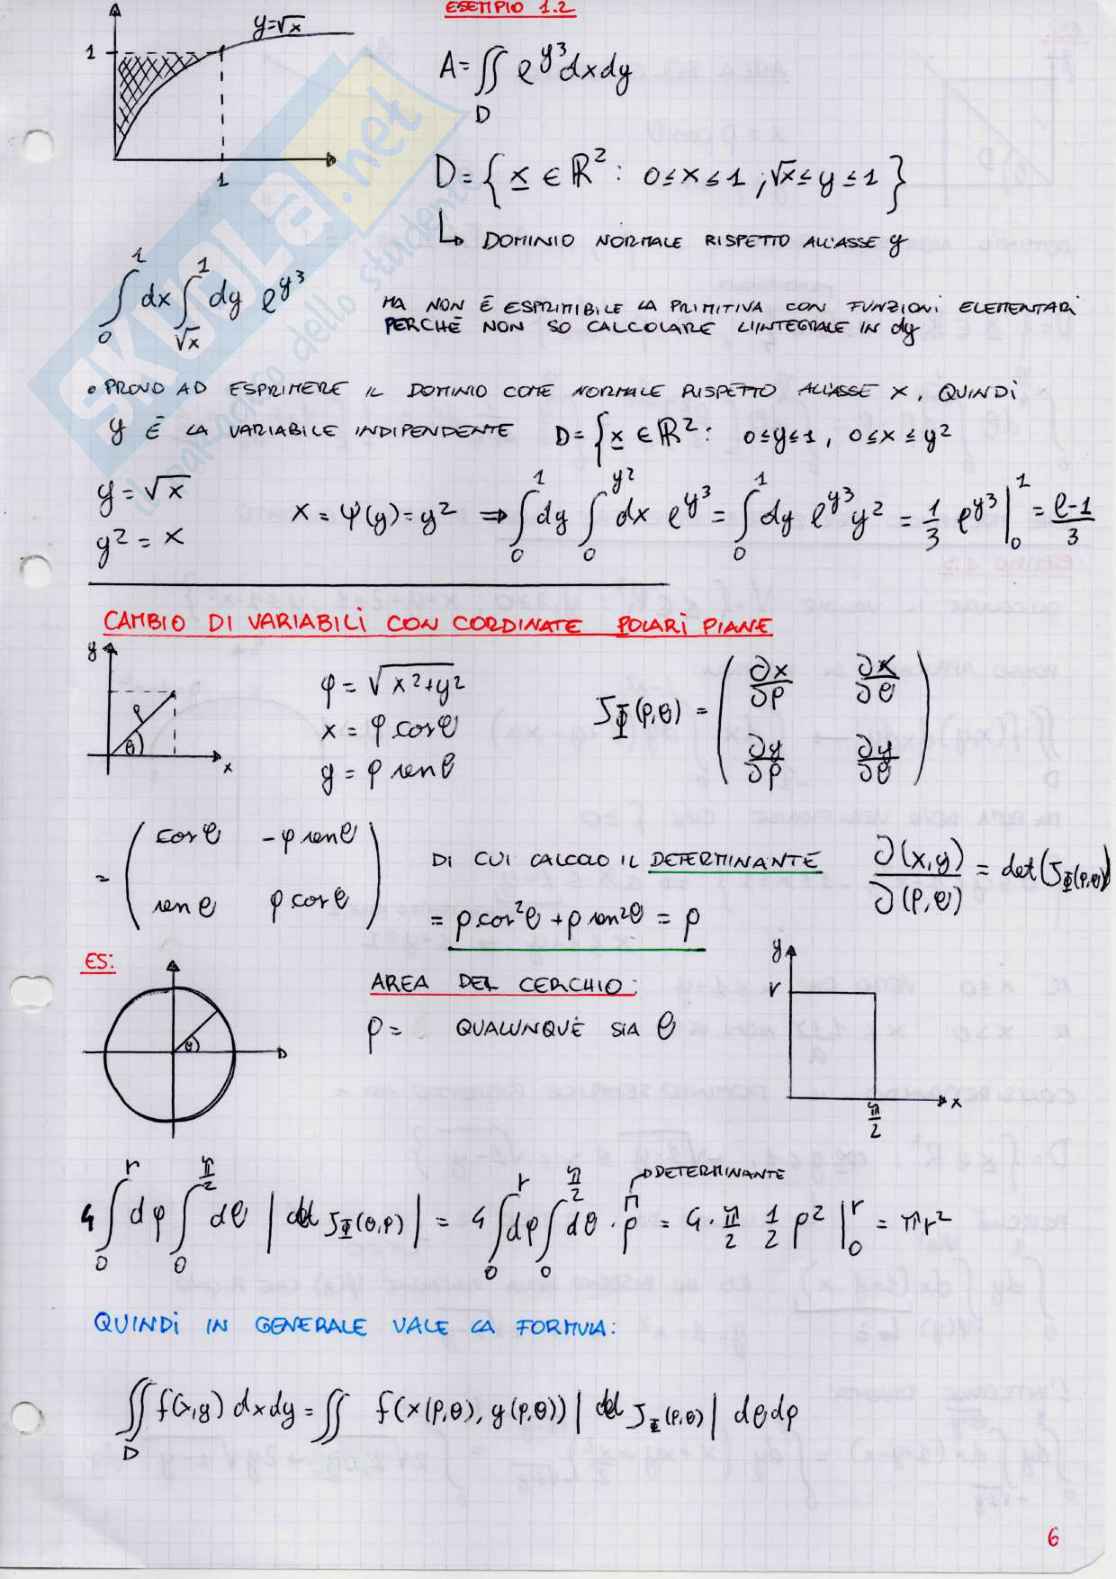 ESEMPIO 1.2
y=√x
1
1
A=∬ e^y³ dxdy
D
D={x ∈ ℝ² : 0≤x≤1 ; √x≤y≤1}
↳ DOMINIO NORMALE RISPETTO ALL'ASSE y
∫₀¹ dx ∫_√x^1 dy e^y³
MA NON È ESPRIMIBILE LA PRIMITIVA CON FUNZIONI ELEMENTARI
PERCHÈ NON SO CALCOLARE L'INTEGRALE IN dy
• PROVO AD ESPRIMERE IL DOMINIO COME NORMALE RISPETTO ALL'ASSE X, QUINDI
y È LA VARIABILE INDIPENDENTE D={x ∈ ℝ² : 0≤y≤1, 0≤x≤y²
y=√x
y²=x
x=ψ(y)=y² ⇒ ∫₀¹ dy ∫₀^y² dx e^y³ = ∫₀¹ dy e^y³ y² = 1/3 e^y³ |₀¹ = e-1/3
CAMBIO DI VARIABILI CON CORDINATE POLARI PIANE
y
ρ
θ
x
ρ=√x²+y²
x=ρ cosθ
y=ρ senθ
J_Φ(ρ,θ) = (∂x/∂ρ ∂x/∂θ
∂y/∂ρ ∂y/∂θ)
= (cosθ -ρ senθ
senθ ρ cosθ)
DI CUI CALCOLO IL DETERMINANTE ∂(x,y)/∂(ρ,θ) = det(J_Φ(ρ,θ))
= ρ cos²θ + ρ sen²θ = ρ
ES:
θ
AREA DEL CERCHIO:
ρ= QUALUNQUE SIA θ
y
r
π/2
x
4 ∫₀^r dρ ∫₀^π/2 dθ |det J_Φ(θ,ρ)| = 4 ∫₀^r dρ ∫₀^π/2 dθ · ρ = 4 · π/2 1/2 ρ² |₀^r = πr²
DETERMINANTE
QUINDI IN GENERALE VALE LA FORMULA:
∬_D f(x,y) dxdy = ∬ f(x(ρ,θ), y(ρ,θ)) |det J_Φ(ρ,θ)| dθdρ
6
SKUOLA.net
il paradiso dello studente